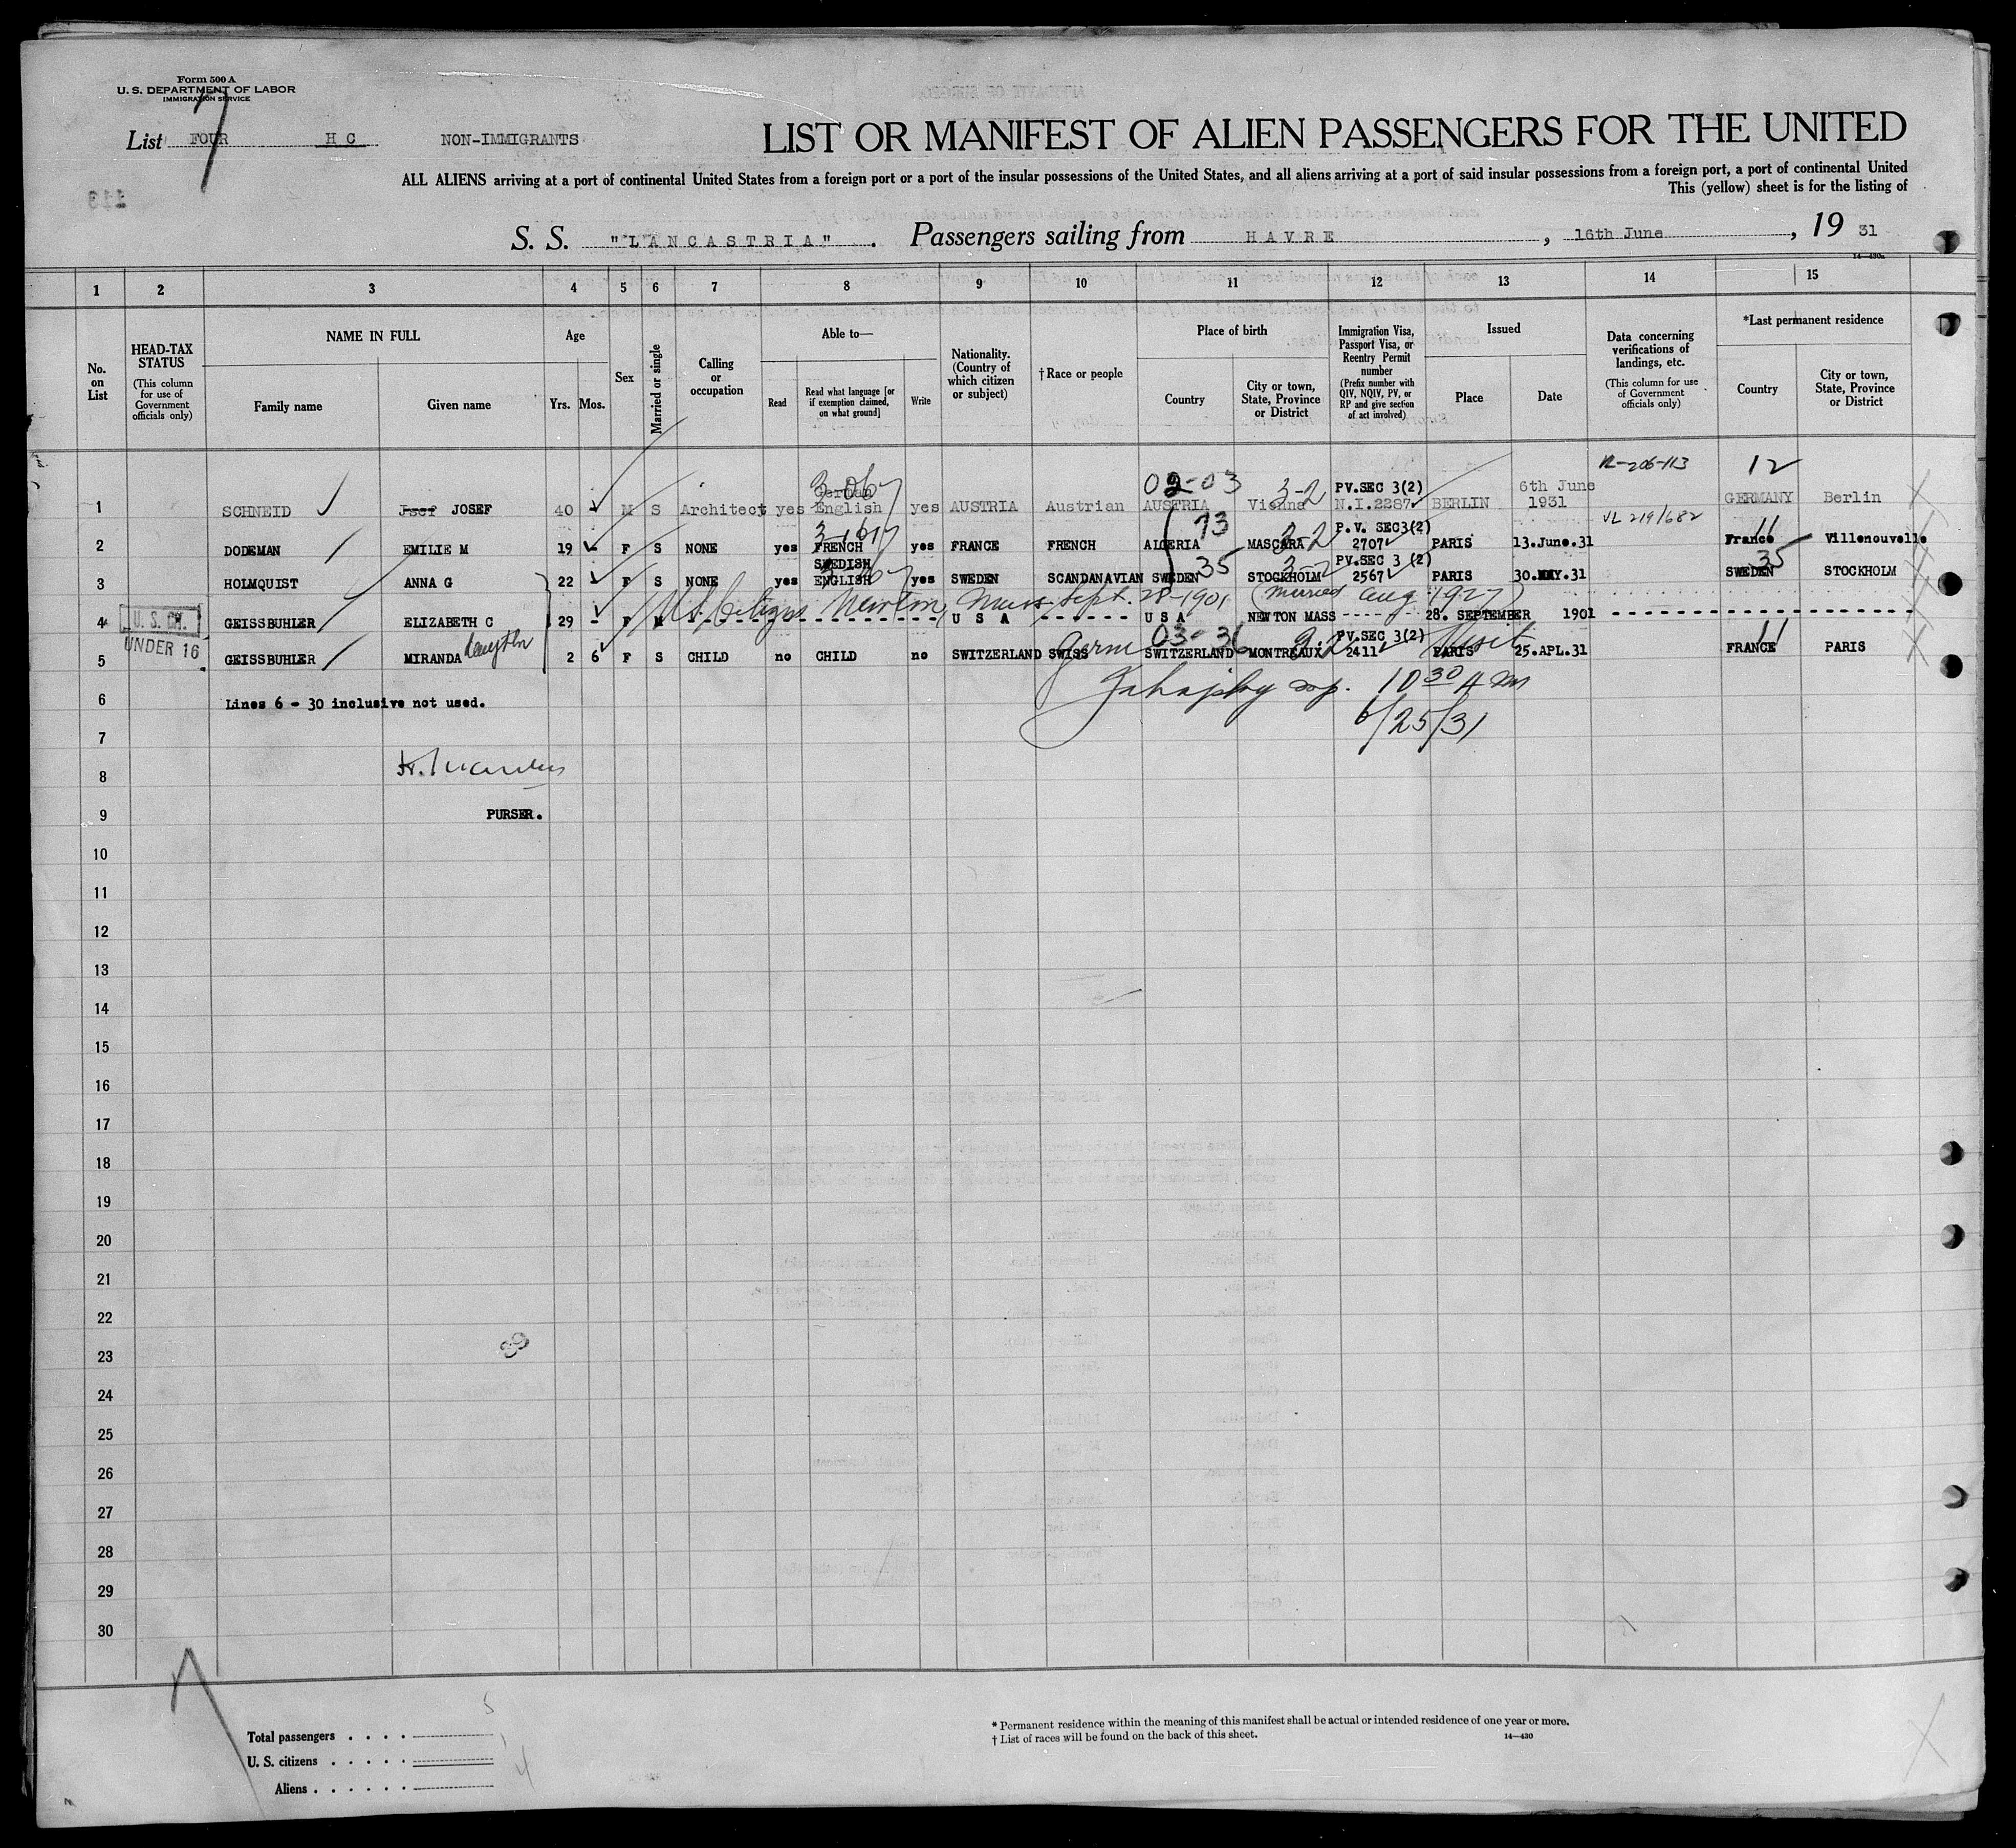 Form 500 A
U. S. DEPARTMENT OF LABOR
IMMIGRATION SERVICE
7
List FOUR H C NON-IMMIGRANTS
LIST OR MANIFEST OF ALIEN PASSENGERS FOR THE UNITED
ALL ALIENS arriving at a port of continental United States from a foreign port or a port of the insular possessions of the United States, and all aliens arriving at a port of said insular possessions from a foreign port, a port of continental United
This (yellow) sheet is for the listing of
S. S. "LANCASTRIA" . Passengers sailing from HAVRE , 16th June , 19 31
14—430a
1 2 3 4 5 6 7 8 9 10 11 12 13 14 15
No. on List
HEAD-TAX STATUS (This column for use of Government officials only)
NAME IN FULL
Family name Given name
Age
Yrs. Mos.
Sex
Married or single
Calling or occupation
Able to—
Read Read what language [or if exemption claimed, on what ground] Write
Nationality. (Country of which citizen or subject)
† Race or people
Place of birth
Country City or town, State, Province or District
Immigration Visa, Passport Visa, or Reentry Permit number (Prefix number with QIV, NQIV, PV, or RP and give section of act involved)
Issued
Place Date
Data concerning verifications of landings, etc. (This column for use of Government officials only)
*Last permanent residence
Country City or town, State, Province or District
R-206-113 12
3-06 02-03 3-2 PV.SEC 3(2) 6th June
German
1 SCHNEID Jsef JOSEF 40 - M S Architect yes English yes AUSTRIA Austrian AUSTRIA Vienna N.I.2287 BERLIN 1931 GERMANY Berlin
13 P.V. SEC3(2) VL 219/682 11
2 DODEMAN EMILIE M 19 - F S NONE yes FRENCH yes FRANCE FRENCH ALGERIA MASCARA 3-2 2707 PARIS 13.June.31 France Villenouvelle
SWEDISH 35 PV.SEC 3 (2) 35
3 HOLMQUIST ANNA G 22 F S NONE yes ENGLISH yes SWEDEN SCANDANAVIAN SWEDEN STOCKHOLM 3-2 2567 PARIS 30.MAY.31 SWEDEN STOCKHOLM
U.S. Citizen Newton, Mass Sept. 28-1901 (Married Aug 1927)
4 U. S. CH. GEISSBUHLER ELIZABETH C 29 - F M - - - U S A - - - - - - U S A NEWTON MASS - - - - - - 28. SEPTEMBER 1901 - - -
UNDER 16 daughter Germ 03-36 PV.SEC 3(2) Visit 11
5 GEISSBUHLER MIRANDA 2 6 F S CHILD no CHILD no SWITZERLAND SWISS SWITZERLAND MONTREAUX 2411 PARIS 25.APL.31 FRANCE PARIS
10 30 A m
6 Lines 6 - 30 inclusive not used.
6/25/31
7
8
9 PURSER.
10
11
12
13
14
15
16
17
18
19
20
21
22
23
24
25
26
27
28
29
30
Total passengers . . . . 5
U. S. citizens . . . . . 1
Aliens . . . . . . 4
* Permanent residence within the meaning of this manifest shall be actual or intended residence of one year or more.
† List of races will be found on the back of this sheet.
14—430